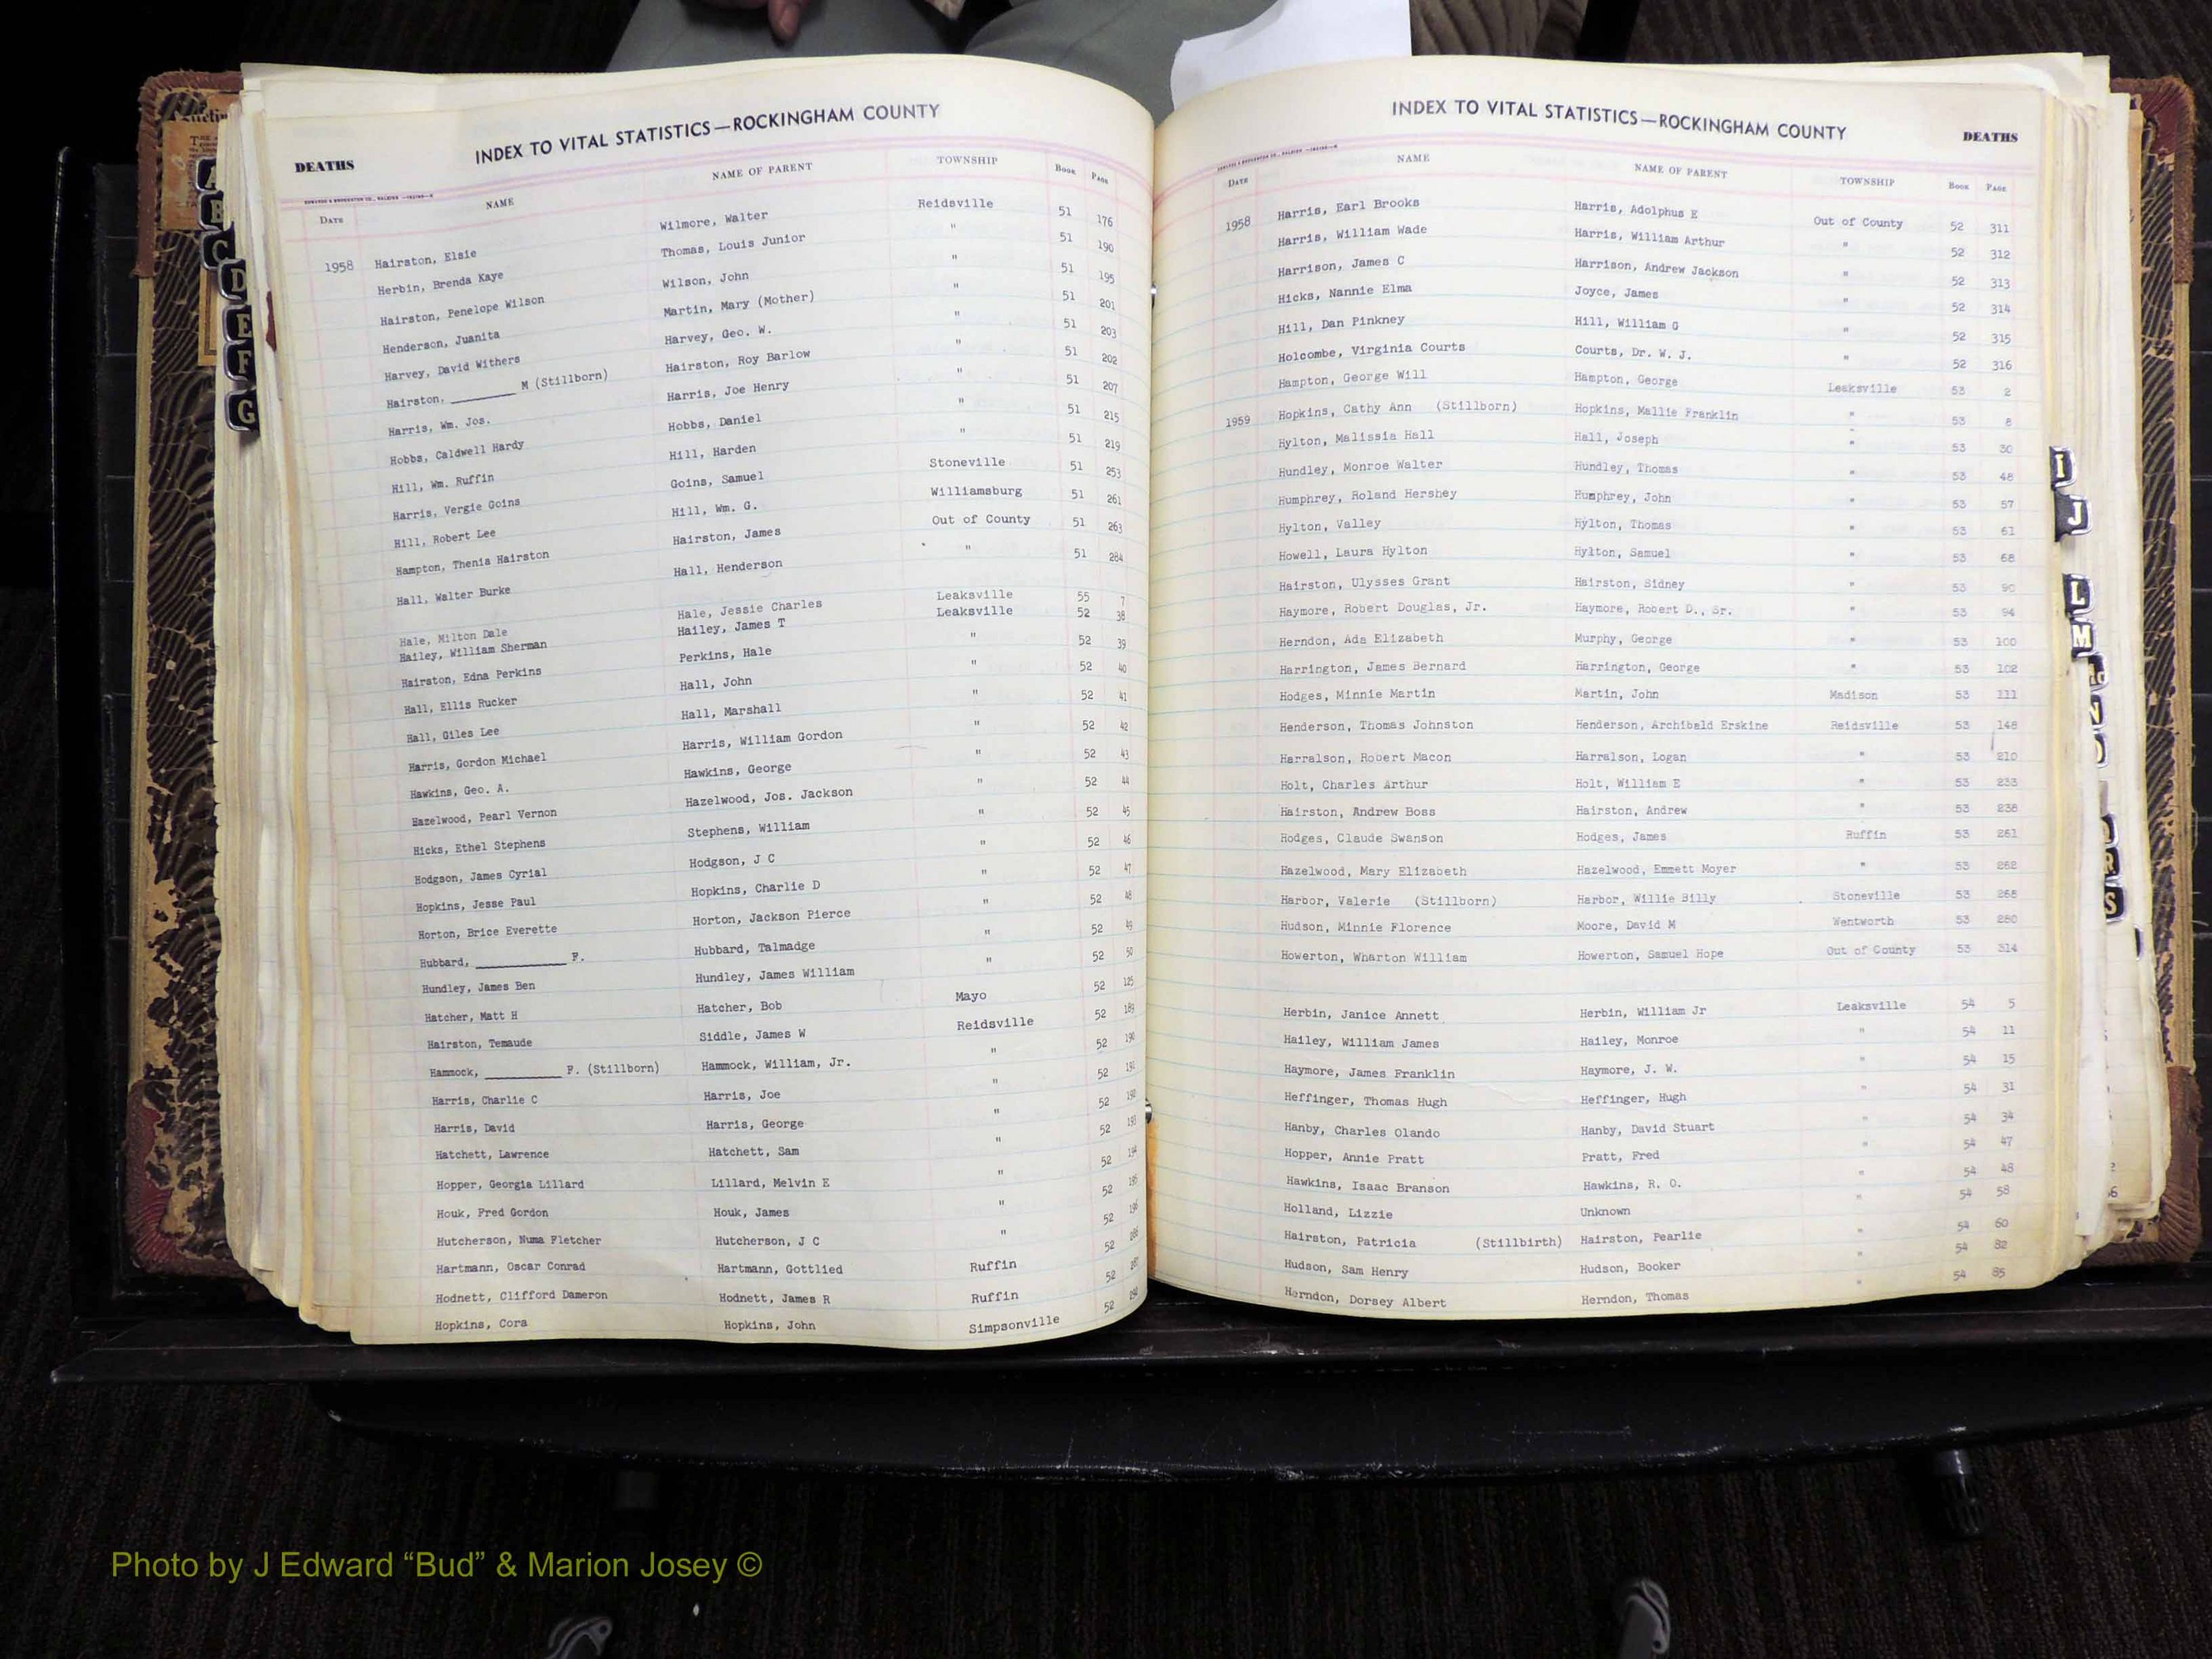 INDEX TO VITAL STATISTICS—ROCKINGHAM COUNTY
DEATHS
DATE NAME NAME OF PARENT TOWNSHIP BOOK PAGE
1958 Hairston, Elsie Wilmore, Walter Reidsville 51 176
Herbin, Brenda Kaye Thomas, Louis Junior " 51 190
Hairston, Penelope Wilson Wilson, John " 51 195
Henderson, Juanita Martin, Mary (Mother) " 51 201
Harvey, David Withers Harvey, Geo. W. " 51 203
Hairston, ________ M (Stillborn) Hairston, Roy Barlow " 51 202
Harris, Wm. Jos. Harris, Joe Henry " 51 207
Hobbs, Caldwell Hardy Hobbs, Daniel " 51 215
Hill, Wm. Ruffin Hill, Harden " 51 219
Harris, Vergie Goins Goins, Samuel Stoneville 51 253
Hill, Robert Lee Hill, Wm. G. Williamsburg 51 261
Hampton, Thenia Hairston Hairston, James Out of County 51 263
Hall, Walter Burke Hall, Henderson " 51 284
Hale, Milton Dale Hale, Jessie Charles Leaksville 55 7
Hailey, William Sherman Hailey, James T Leaksville 52 38
Hairston, Edna Perkins Perkins, Hale " 52 39
Hall, Ellis Rucker Hall, John " 52 40
Hall, Giles Lee Hall, Marshall " 52 41
Harris, Gordon Michael Harris, William Gordon " 52 42
Hawkins, Geo. A. Hawkins, George " 52 43
Hazelwood, Pearl Vernon Hazelwood, Jos. Jackson " 52 44
Hicks, Ethel Stephens Stephens, William " 52 45
Hodgson, James Cyrial Hodgson, J C " 52 46
Hopkins, Jesse Paul Hopkins, Charlie D " 52 47
Horton, Brice Everette Horton, Jackson Pierce " 52 48
Hubbard, ________ F. Hubbard, Talmadge " 52 49
Hundley, James Ben Hundley, James William " 52 50
Hatcher, Matt H Hatcher, Bob Mayo 52 125
Hairston, Temaude Siddle, James W Reidsville 52 189
Hammock, ________ F. (Stillborn) Hammock, William, Jr. " 52 190
Harris, Charlie C Harris, Joe " 52 191
Harris, David Harris, George " 52 192
Hatchett, Lawrence Hatchett, Sam " 52 193
Hopper, Georgia Lillard Lillard, Melvin E " 52 194
Houk, Fred Gordon Houk, James " 52 195
Hutcherson, Numa Fletcher Hutcherson, J C " 52 196
Hartmann, Oscar Conrad Hartmann, Gottlied Ruffin 52
Hodnett, Clifford Dameron Hodnett, James R Ruffin 52
Hopkins, Cora Hopkins, John Simpsonville 52
INDEX TO VITAL STATISTICS—ROCKINGHAM COUNTY
DEATHS
DATE NAME NAME OF PARENT TOWNSHIP BOOK PAGE
1958 Harris, Earl Brooks Harris, Adolphus E Out of County 52 311
Harris, William Wade Harris, William Arthur " 52 312
Harrison, James C Harrison, Andrew Jackson " 52 313
Hicks, Nannie Elma Joyce, James " 52 314
Hill, Dan Pinkney Hill, William G " 52 315
Holcombe, Virginia Courts Courts, Dr. W. J. " 52 316
Hampton, George Will Hampton, George Leaksville 53 2
1959 Hopkins, Cathy Ann (Stillborn) Hopkins, Mallie Franklin " 53 8
Hylton, Malissia Hall Hall, Joseph " 53 30
Hundley, Monroe Walter Hundley, Thomas " 53 48
Humphrey, Roland Hershey Humphrey, John " 53 57
Hylton, Valley Hylton, Thomas " 53 61
Howell, Laura Hylton Hylton, Samuel " 53 68
Hairston, Ulysses Grant Hairston, Sidney " 53 90
Haymore, Robert Douglas, Jr. Haymore, Robert D., Sr. " 53 94
Herndon, Ada Elizabeth Murphy, George " 53 100
Harrington, James Bernard Harrington, George " 53 102
Hodges, Minnie Martin Martin, John Madison 53 111
Henderson, Thomas Johnston Henderson, Archibald Erskine Reidsville 53 148
Harralson, Robert Macon Harralson, Logan " 53 210
Holt, Charles Arthur Holt, William E " 53 233
Hairston, Andrew Boss Hairston, Andrew " 53 238
Hodges, Claude Swanson Hodges, James Ruffin 53 261
Hazelwood, Mary Elizabeth Hazelwood, Emmett Moyer " 53 262
Harbor, Valerie (Stillborn) Harbor, Willie Billy Stoneville 53 268
Hudson, Minnie Florence Moore, David M Wentworth 53 280
Howerton, Wharton William Howerton, Samuel Hope Out of County 53 314
Herbin, Janice Annett Herbin, William Jr Leaksville 54 5
Hailey, William James Hailey, Monroe " 54 11
Haymore, James Franklin Haymore, J. W. " 54 15
Heffinger, Thomas Hugh Heffinger, Hugh " 54 31
Hanby, Charles Olando Hanby, David Stuart " 54 34
Hopper, Annie Pratt Pratt, Fred " 54 47
Hawkins, Isaac Branson Hawkins, R. O. " 54 48
Holland, Lizzie Unknown " 54 58
Hairston, Patricia (Stillbirth) Hairston, Pearlie " 54 60
Hudson, Sam Henry Hudson, Booker " 54 82
Herndon, Dorsey Albert Herndon, Thomas " 54 85
A
B
C
D
E
F
G
I
J
L
M
N
R
S
Photo by J Edward “Bud” & Marion Josey ©